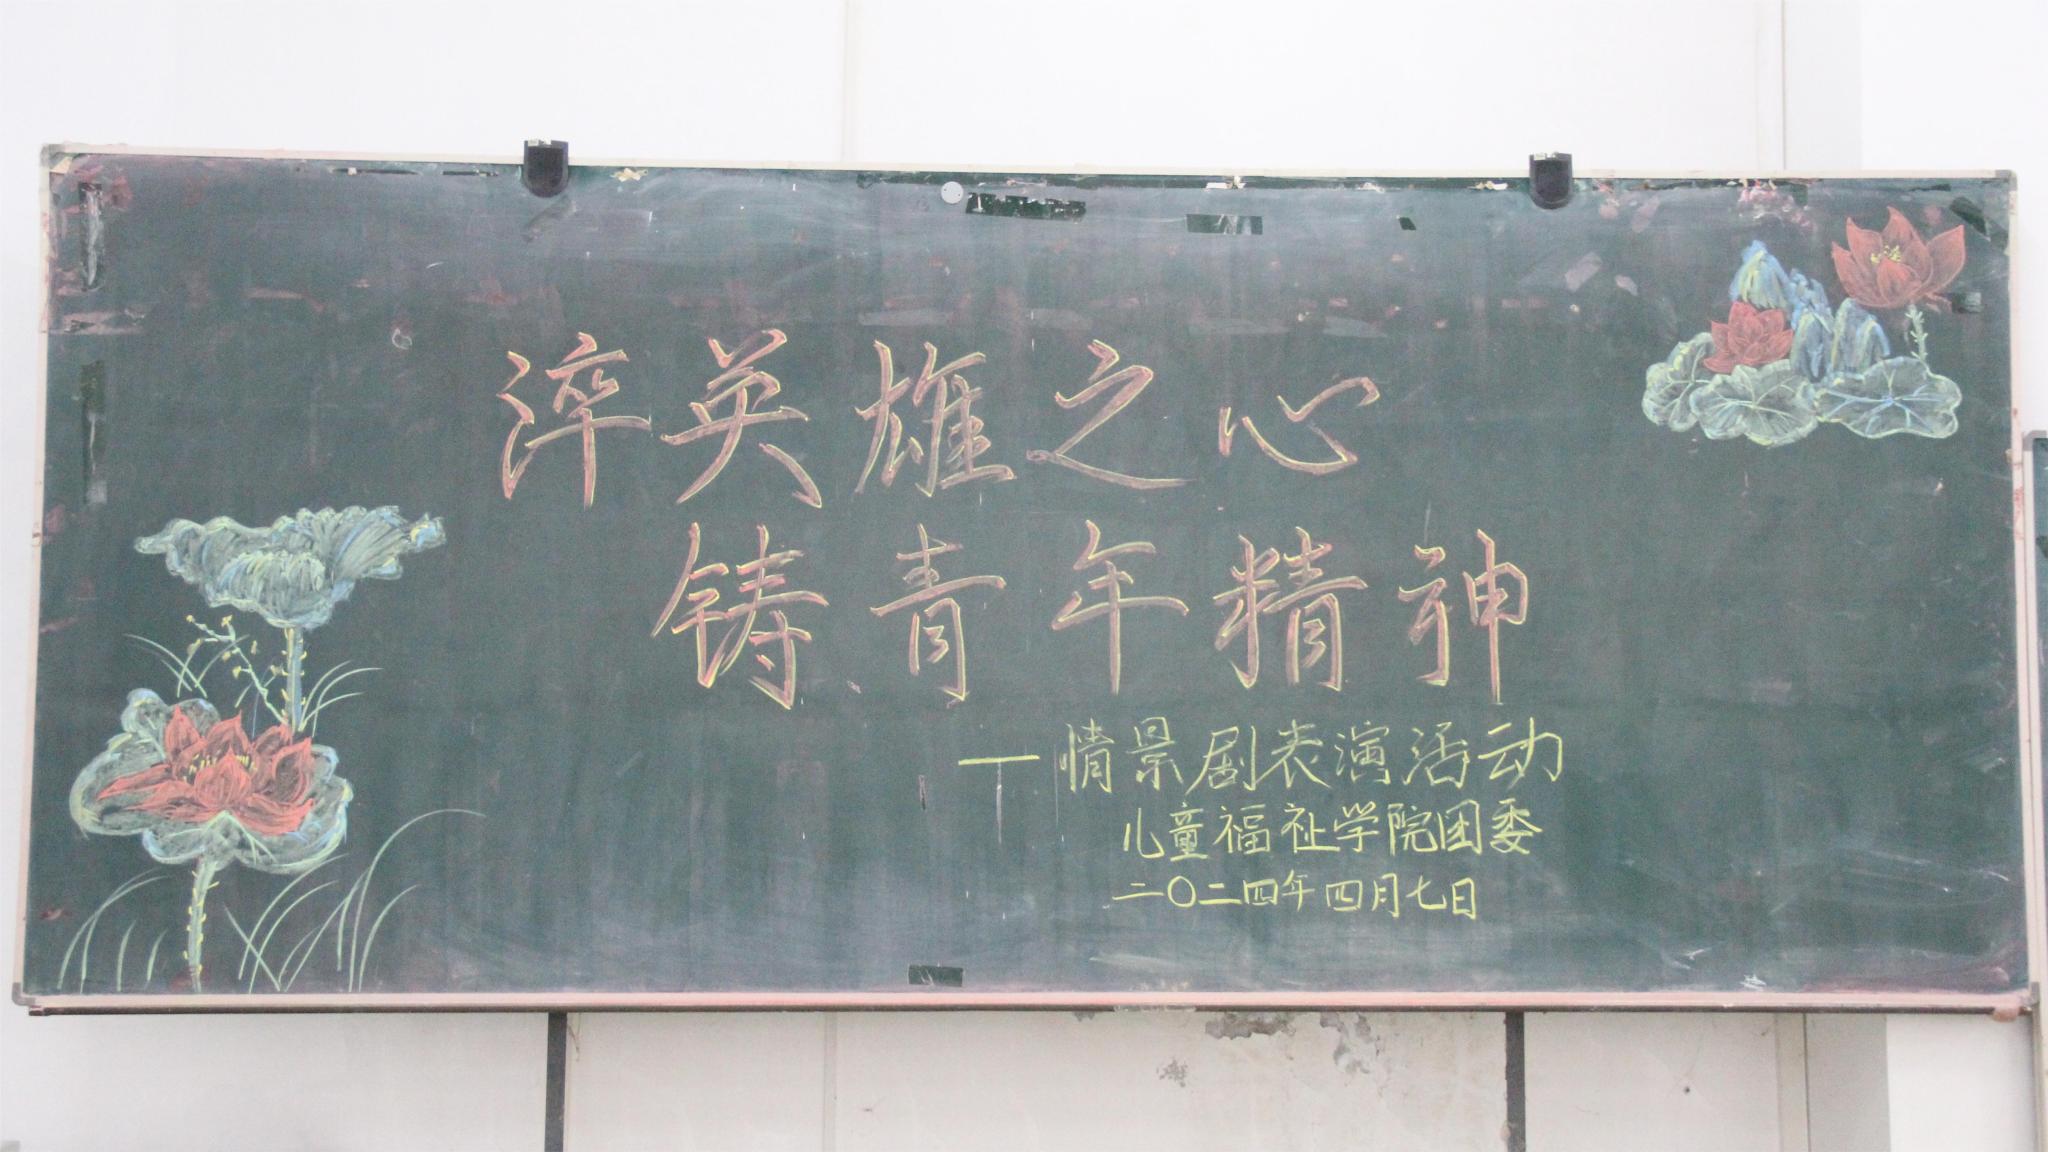 淬英雄之心
铸青年精神
—情景剧表演活动
儿童福祉学院团委
二〇二四年四月七日